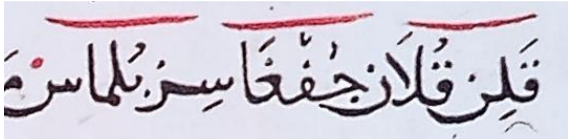 قَلِنْ قُلَانْ جُفْغَا سِزْ بُلماس